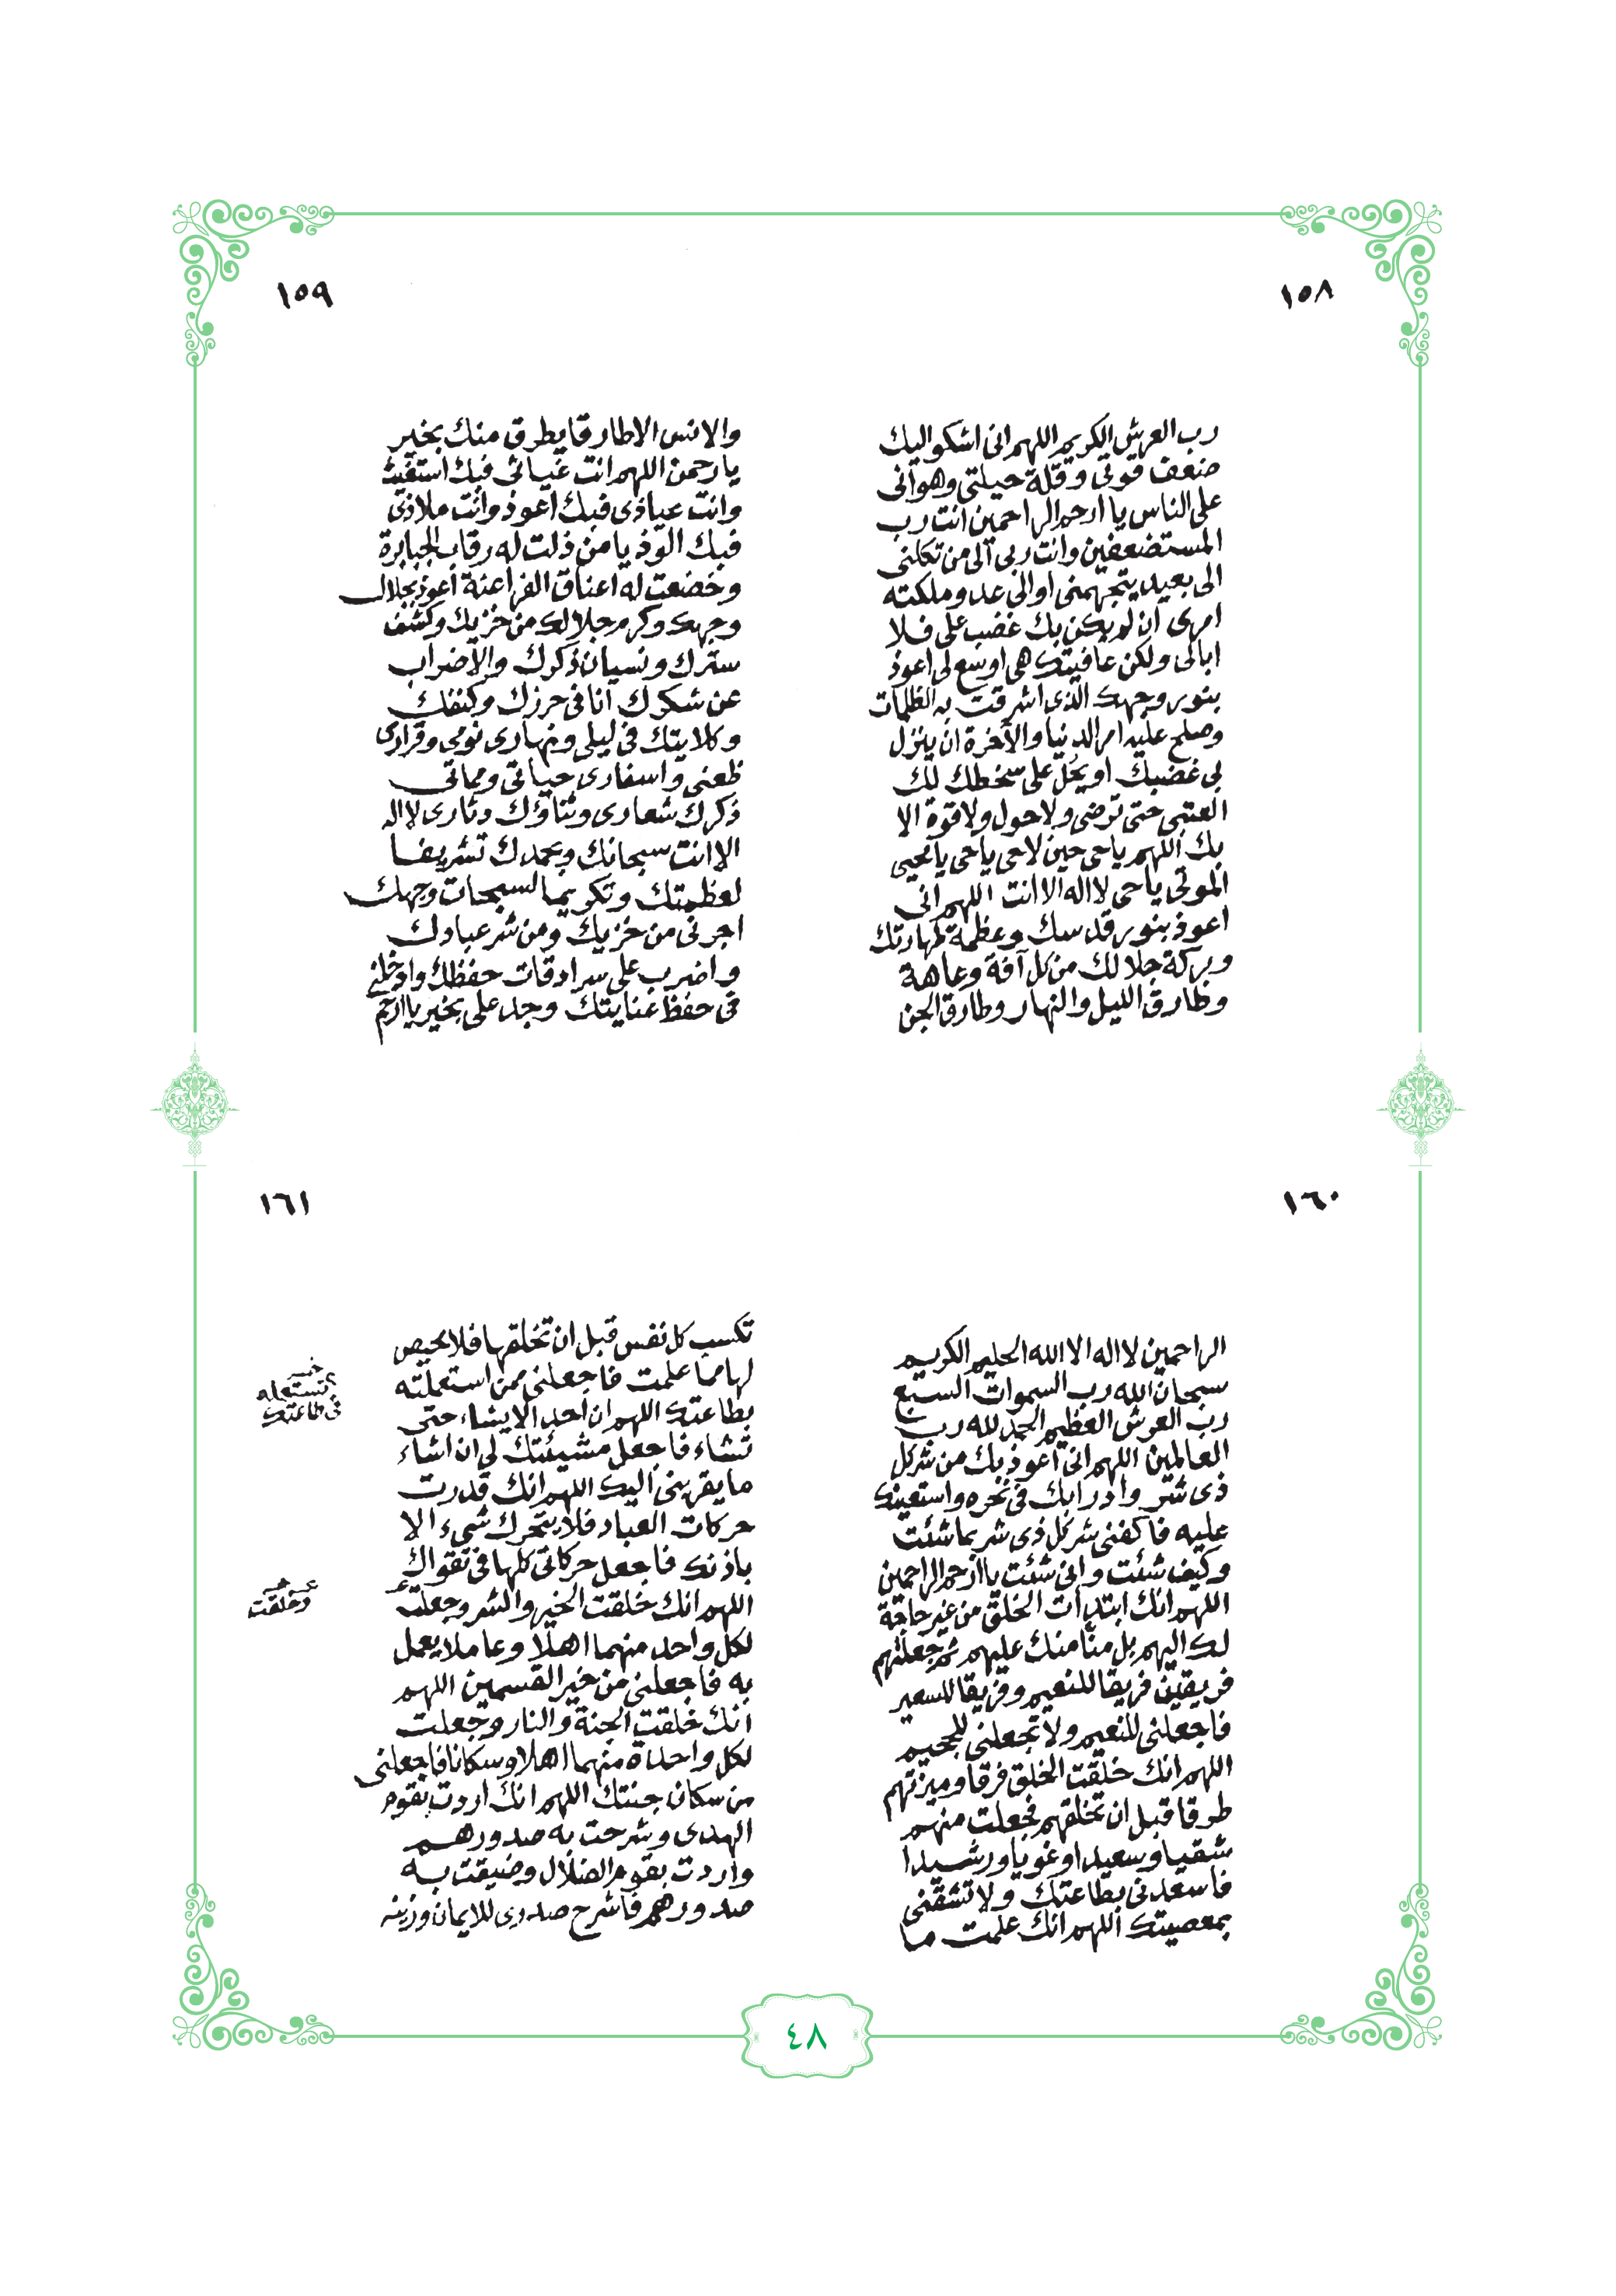 ١٥٨
رب العرش الكريم اللهم انى اشكو اليك
ضعف قوتى وقلة حيلتى وهوانى
على الناس يا ارحم الراحمين انت رب
المستضعفين وانت ربى الى من تكلنى
الى بعيد يتجهمنى او الى عدو ملكته
امرى ان لم يكن بك غضب على فلا
ابالى ولكن عافيتك هى اوسع لى اعوذ
بنور وجهك الذى اشرقت به الظلمات
وصلح عليه امر الدنيا والآخرة ان ينزل
بى غضبك او يحل على سخطك لك
العتبى حتى ترضى ولا حول ولا قوة الا
بك اللهم ياحى حين لاحى ياحى يامحيى
الموتى ياحى لا اله الا انت اللهم انى
اعوذ بنور قدسك وعظمة طهارتك
وبركة جلالك من كل آفة وعاهة
وطارق الليل والنهار وطارق الجن
١٥٩
والانس الا طارقا يطرق منك بخير
يارحمن اللهم انت غياثى فبك استغيث
وانت عياذى فبك اعوذ وانت ملاذى
فبك الوذ يا من ذلت له رقاب الجبابرة
وخضعت له اعناق الفراعنة اعوذ بجلال
وجهك وكرم جلالك من خزيك وكشف
سترك ونسيان ذكرك والاضراب
عن شكرك انا فى حرزك وكنفك
وكلايتك فى ليلى ونهارى نومى وقرارى
ظعنى واسفارى حياتى ومماتى
ذكرك شعارى وثناؤك دثارى لا اله
الا انت سبحانك وبحمدك تشريفا
لعظمتك وتكريما لسبحات وجهك
اجرنى من خزيك ومن شر عبادك
واضرب على سرادقات حفظك وادخلنى
فى حفظ عنايتك وجد على بخير يا ارحم
١٦٠
الراحمين لا اله الا الله الحليم الكريم
سبحان الله رب السموات السبع
رب العرش العظيم الحمد لله رب
العالمين اللهم انى اعوذ بك من شر كل
ذى شر وادرا بك فى نحره واستعينك
عليه فاكفنى شر كل ذى شر بما شئت
وكيف شئت وانى شئت يا ارحم الراحمين
اللهم انك ابتدأت الخلق من غير حاجة
لك اليهم بل منّا منك عليهم ثم جعلتهم
فريقين فريقا للنعيم وفريقا للسعير
فاجعلنى للنعيم ولا تجعلنى للجحيم
اللهم انك خلقت الخلق فرقا وميزتهم
طرقا قبل ان تخلقهم فجعلت منهم
شقيا وسعيدا وغويا ورشيدا
فاسعدنى بطاعتك ولا تشقنى
بمعصيتك اللهم انك علمت ما
١٦١
تكسب كل نفس قبل ان تخلقها فلا محيص
لها مما علمت فاجعلنى ممن استعملته
بطاعتك اللهم ان احدا لا يشاء حتى
تشاء فاجعل مشيئتك لى ان اشاء
ما يقربنى اليك اللهم انك قدرت
حركات العباد فلا يتحرك شىء الا
باذنك فاجعل حركاتى كلها فى تقواك
اللهم انك خلقت الخير والشر وجعلت
لكل واحد منهما اهلا وعاملا يعمل
به فاجعلنى من خير القسمين اللهم
انك خلقت الجنة والنار وجعلت
لكل واحدة منهما اهلا وسكانا فاجعلنى
من سكان جنتك اللهم انك اردت بقوم
الهدى وشرحت به صدورهم
واردت بقوم الضلال وضيقت به
صدورهم فاشرح صدرى للايمان وزينه
تستعمله
فى طاعتك
وخلقت
٤٨